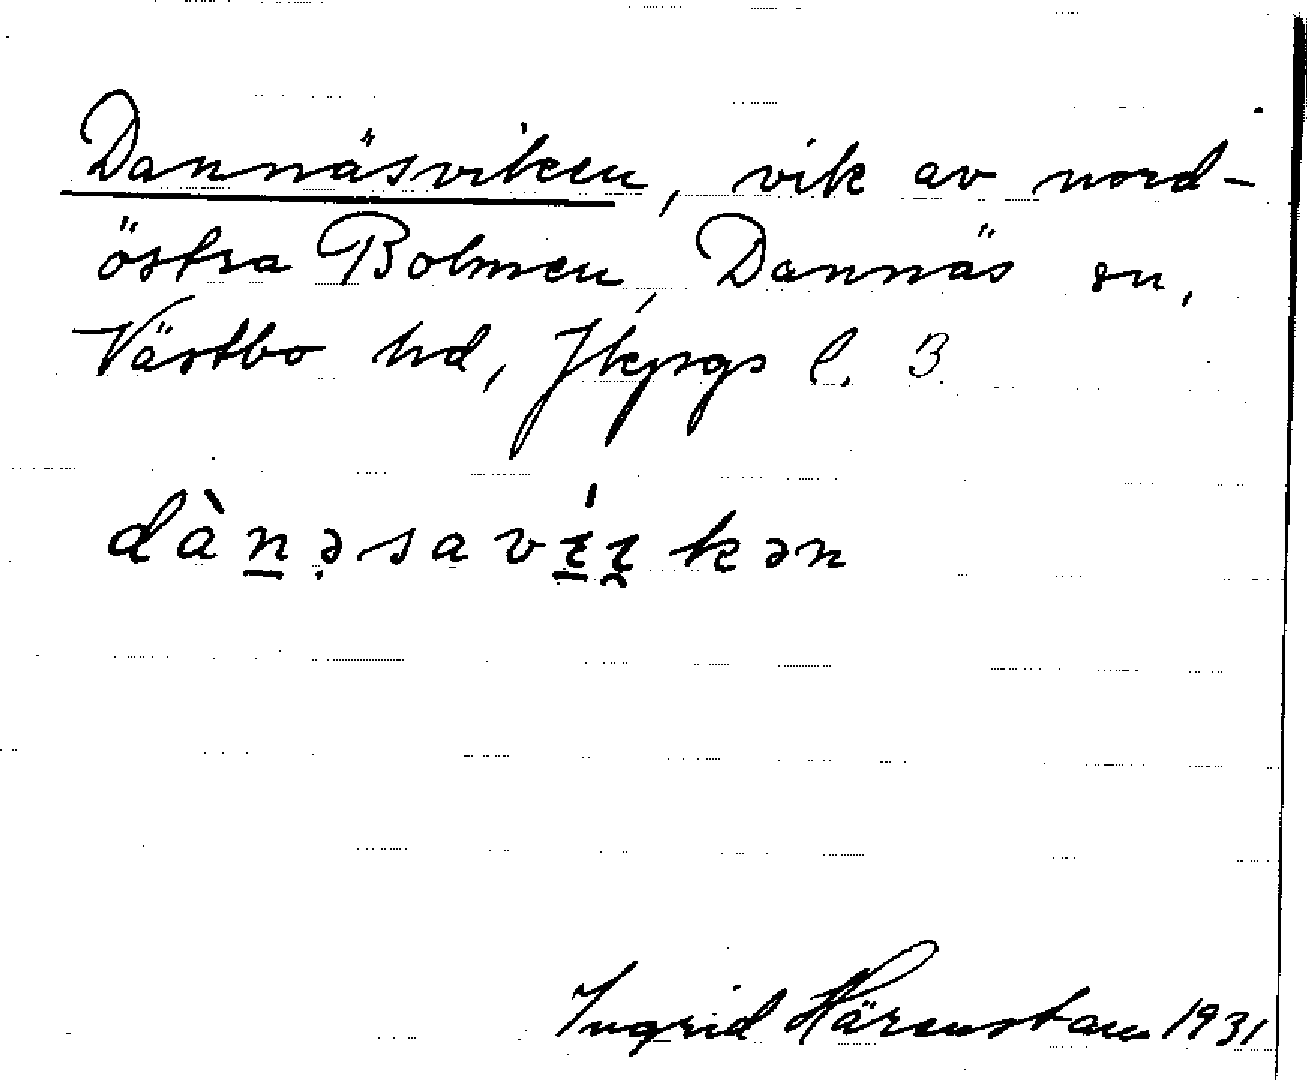 Dannäsviken, vik av nord-
östra Bolmen, Dannäs sn,
Västbo hd, Jkpgs l. 3
dàn̲ə̣savɪ̲́ɪ̯kən
Ingrid Härenstam 1931